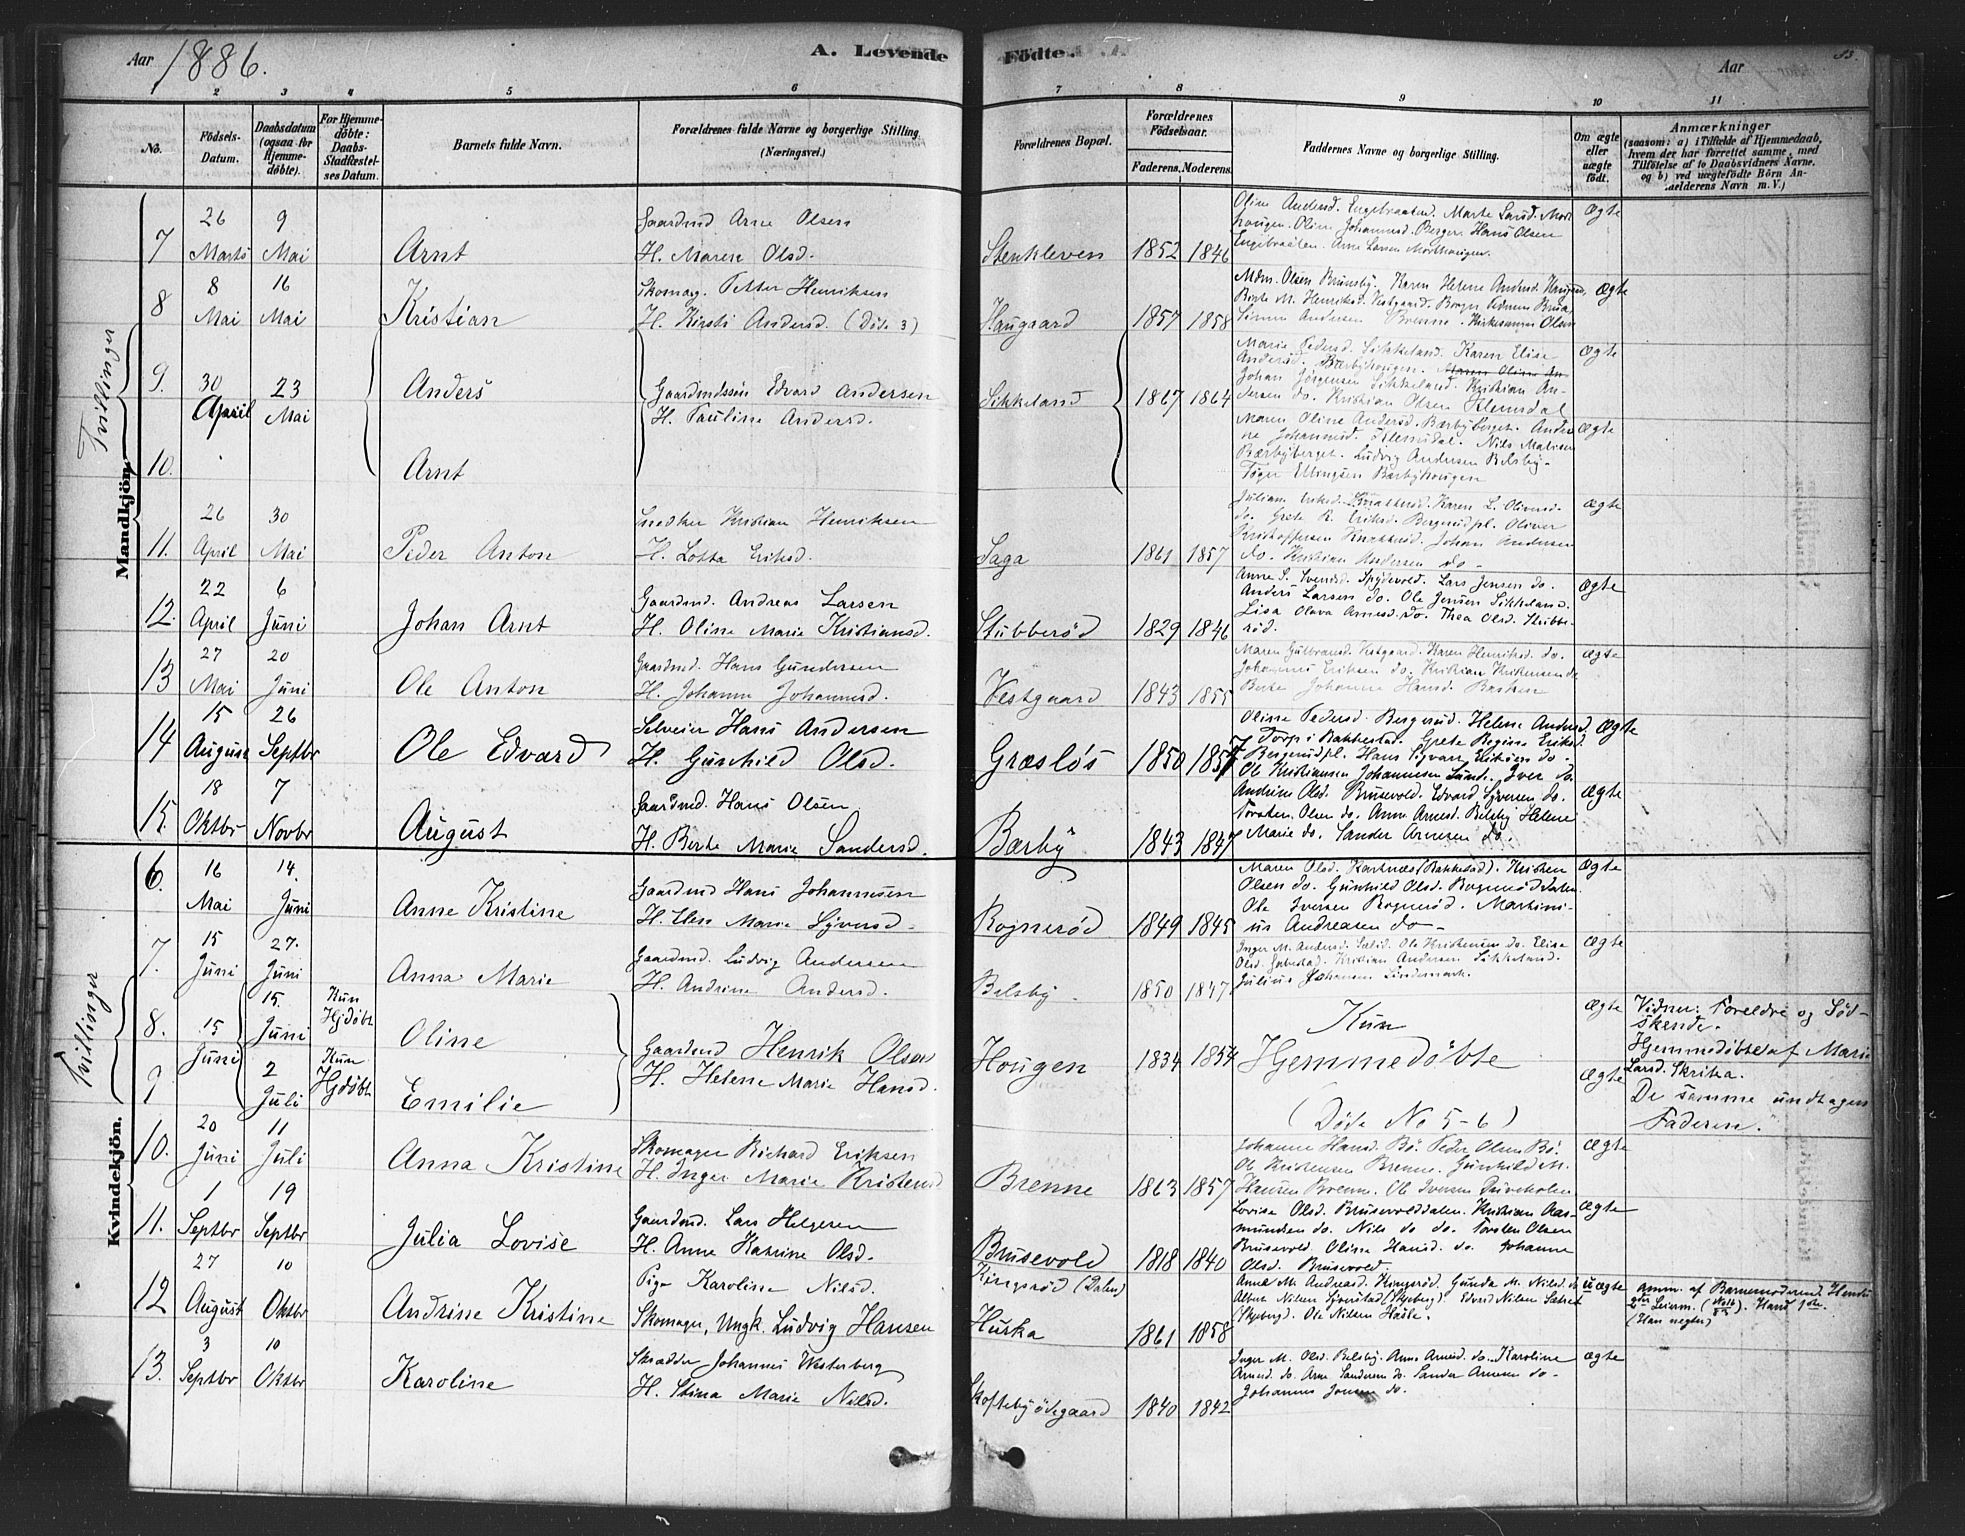 Aar 1886.
A. Levende
Födte.
Aar
83.
1 2 3 4 5 6 7 8 9 10 11
No.
Födsels-
Datum.
Daabsdatum
(ogsaa for
Hjemme-
döbte).
For Hjemme-
döbte:
Daabs-
Stadfæstel-
ses Datum.
Barnets fulde Navn.
Forældrenes fulde Navne og borgerlige Stilling
(Næringsvei.)
Forældrenes Bopæl.
Forældrenes
Födselsaar.
Faderens. Moderens.
Faddernes Navne og borgerlige Stilling.
Om ægte
eller
uægte
födt.
Anmærkninger
(saasom: a) i Tilfælde af Hjemmedaab,
hvem der har forrettet samme, med
Tilföielse af to Daabsvidners Navne,
og b) ved uægtefödte Börn An-
melderens Navn m. V.)
Mandkjön.
Tvillinger
7 26 Marts 9 Mai Arnt
Gaardmd Arne Olsen
H. Maren Olsd.
Stenkleven 1852 1846
Oline Andersd. Engebraaten. Marte Larsd. Mort
hougen. Oline Johannesd. Berger. Hans Olsen
Engebraaten. Arne Larsen Morthougen.
Ægte
8 8 Mai 16 Mai Kristian
Skomag. Petter Henriksen
H. Kirsti Andersd. (Döde 3)
Haugaard 1857 1858
Mdm. Olsen Brunsby. Karen Helene Andersd. Haugaard,
Berte M. Henriksd. Vestgaard. Borger Pedersen
Simen Andersen Brenne. Kirkesanger Olsen
Ægte
9. 30 April 23 Mai Anders
Gaardmdssön Edvard Andersen
H. Pauline Andersd.
Sikkeland 1867 1864
Marie Pedersd. Sikkeland. Karen Elise
Andersd. Bærbyhougen. Maren Oline An
Johan Jörgensen Sikkeland. Kristian An-
dersen do. Kristian Olsen Klemsdal
Ægte
10. Arnt
Maren Oline Andersd. Bærbyberget. Andri
ne Johannesd. Klemsdal. Nils Matisen
Bærbyberget. Ludvig Andersen Belsby.
Töger Ellingsen Bærbyhougen
Ægte
11. 26 April 30 Mai Peder Anton
Snedker Kristian Henriksen
H. Lotta Eriksd.
Saga 1861 1857
Juliane Eriksd. Knatterud. Karen L. Oliversd.
do. Grete R. Eriksd. Bergerudpl. Oliver
Kristoffersen Knatterud. Johan Andersen
do. Kristian Andersen do.
Ægte
12. 22 April 6 Juni Johan Arnt
Gaardmd. Andreas Larsen
H. Oline Marie Kristiansd.
Stubberöd 1829 1846
Anne S. Svendsd. Spydevold. Lars Jensen do.
Anders Larsen do. Ole Jensen Sikkeland.
Lisa Olava Arnesd. do. Thea Olsd. Stubbe-
röd.
Ægte
13 27 Mai 20 Juni Ole Anton
Gaardmd. Hans Gundersen
H. Johanne Johannesd.
Vestgaard 1843 1855
Maren Gulbransd. Vestgaard. Karen Henriksd. do.
Johannes Eriksen do. Kristian Kristensen do
Berte Johanne Hansd.
Ægte
14 15 August 26 Septbr Ole Edvard
Selveier Hans Andersen
H. Gunhild Olsd.
Græslös 1850 1857
Oline Pedersd. Bergerud. Helene Andersd.
Torp i Bakkestad. Grete Regine Eriksd.
Bergerudpl. Hans Syvart Eriksen do.
Ole Kristiansen Johannesen Lund. Iver do.
Ægte
15. 18 Oktbr 7 Novbr August
Gaardmd. Hans Olsen
H. Berte Marie Sandersd.
Bærby 1843 1847
Andrine Olsd. Brusevold. Edvard Syversen do.
Torsten Olsen do. Anne Arnesd. Belsby Helene
Marie do. Sander Arnesen do.
Ægte
Kvindekjön.
Tvillinger
6. 16 Mai 14. Juni Anne Kristine
Gaardmd Hans Johannesen
H. Else Marie Syversd.
Rogneröd 1849 1845
Maren Olsd. Kortnæs (Rakkestad). Kristen
Olsen do. Gunhild Olsd. Rogneröddalen.
Ole Iversen Rogneröd. Martini-
us Andreasen do.
Ægte
7. 15 Juni 27. Juni Anna Marie
Gaardmd. Ludvig Andersen
H. Andrine Andersd.
Belsby. 1850 1847
Inger M. Andersd. Sælid. Ole Kristensen do. Elise
Olsd. Kristian Andersen Sikkeland.
Julius Johansen Söndemark.
Ægte
8. 15 Juni 15. Juni Kun Hjdöbt Oline
Gaardmd Henrik Olsen
H. Helene Marie Hansd.
Hougen 1834 1854
Kun
Hjemmedöbte
(Döde No 5-6)
Ægte
Vidner: Foreldre og Söd-
skende.
Hjemmedöbte af Marie
Larsd. Skrika.
9 2 Juli Kun Hjdöbt Emilie
Ægte
De samme undtagen
Faderen.
10. 20 Juni 11 Juli Anna Kristine
Skomager Richard Eriksen
H. Inger Marie Kristensd
Brenne 1863 1857
Johanne Hansd. Bö. Peder Olsen Bö.
Ole Kristensen Brenne. Gunhild M.
Hansen Brenne. Ole Iversen
Ægte
11. 1 Septbr 19 Septbr Julia Lovise
Gaardmd. Lars Helgesen
H. Anne Katrine Olsd.
Brusevold 1818 1840
Lovise Olsd. Brusevolddalen. Kristian Ras-
mundsen do. Nils do do. Torsten Olsen
Brusevold. Oline Hansd. do. Johanne
Olsd. Brusevold.
Ægte
12 27 August 10 Oktbr Andrine Kristine
Pige Karoline Nilsd.
Skomager, Ungk. Ludvig Hansen
Kingsröd (Dalen)
Huska 1861 1858
Anne M. Andreasd. Kingsröd. Gunda M. Nilsd. do
Albert Nilsen (Skjeberg). Edvard Nilsen
(Skjeberg). Ole Nilsen Hasle.
uægte
Anm. af Barnemoderen. Hendes
2den Leierm. Hans 1ste.
(Han negter)
13. 3 Septbr 10 Oktbr Karoline
Skrædder Johannes Westerberg
H. Stina Marie Nilsd.
Skoftebyödegaard 1840 1842
Inger M. Olsd. Belsby. Anne Arnesd. do. Karoline
Arnesd. do. Arne Sandersen do. Sander Arnesen do.
Johannes Jonsen do.
Ægte